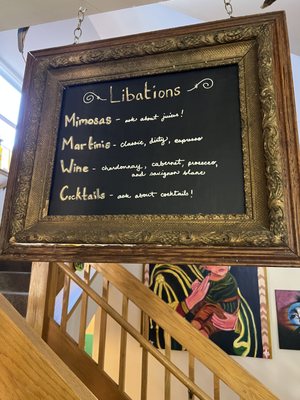 Libations
Mimosas - ask about juices!
Martinis - classic, dirty, espresso
Wine - chardonnay, cabernet, prosecco,
and sauvignon blanc
Cocktails - ask about cocktails!